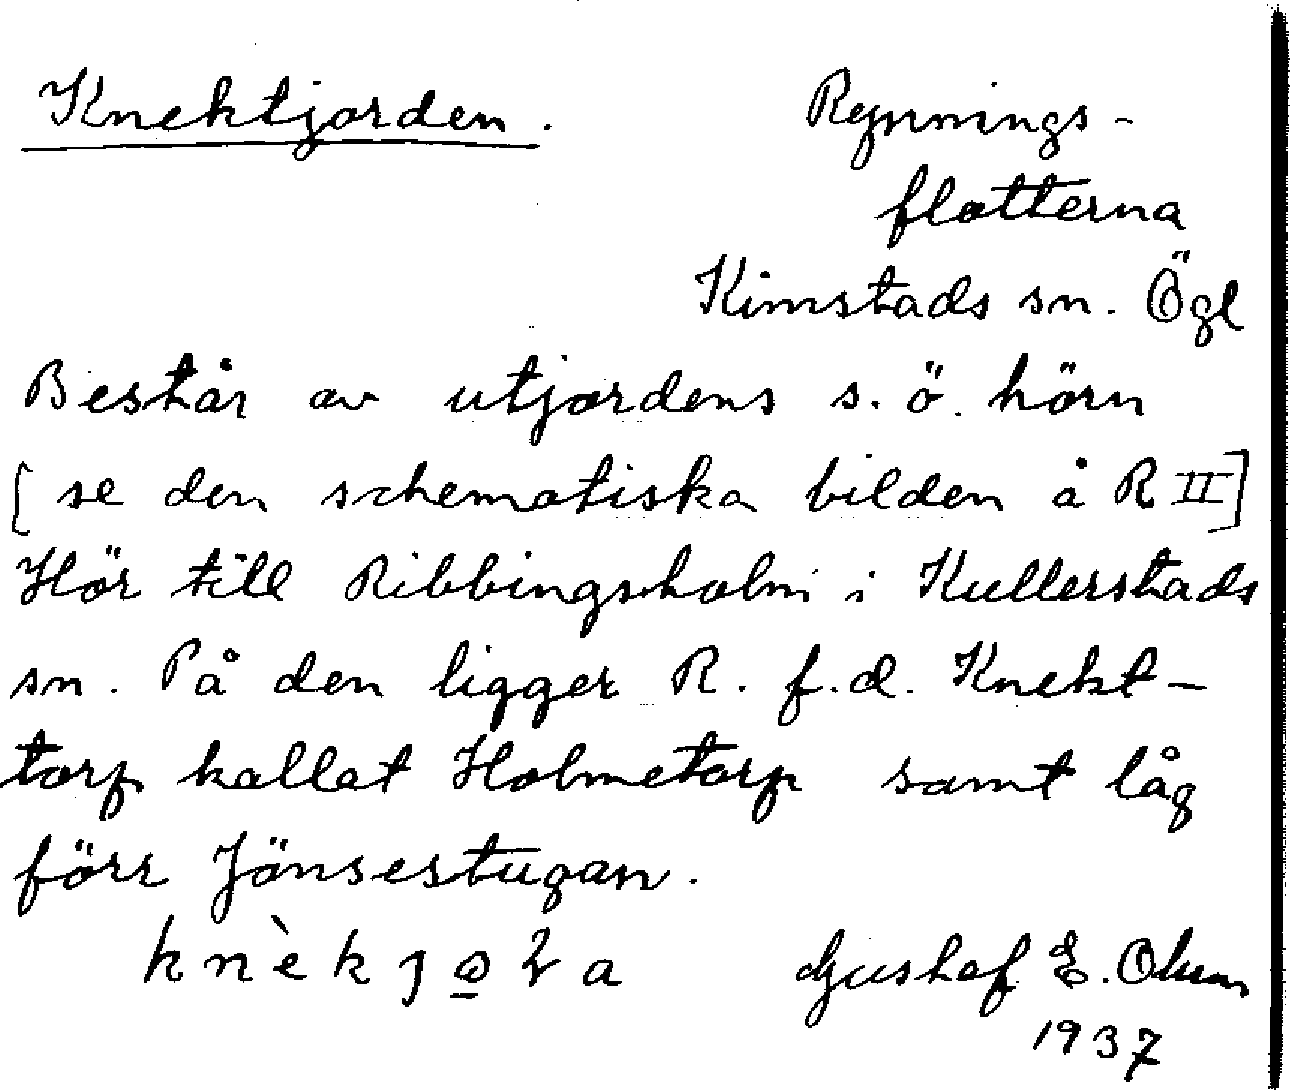 Knektjorden. Rynnings-
flatterna
Kimstads sn. Ögl
Består av utjordens s. ö. hörn
[se den schematiska bilden å R II]
Hör till Ribbingsholm i Kullerstads
sn. På den ligger R. f.d. Knekt-
torp kallat Holmetorp samt låg
förr Jönsestugan.
Gustaf E. Olson
1937